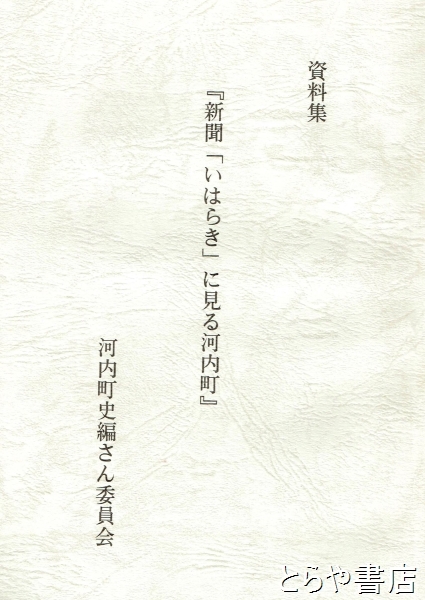 資料集
『新聞「いはらき」に見る河内町』
河内町史編さん委員会
とらや書店